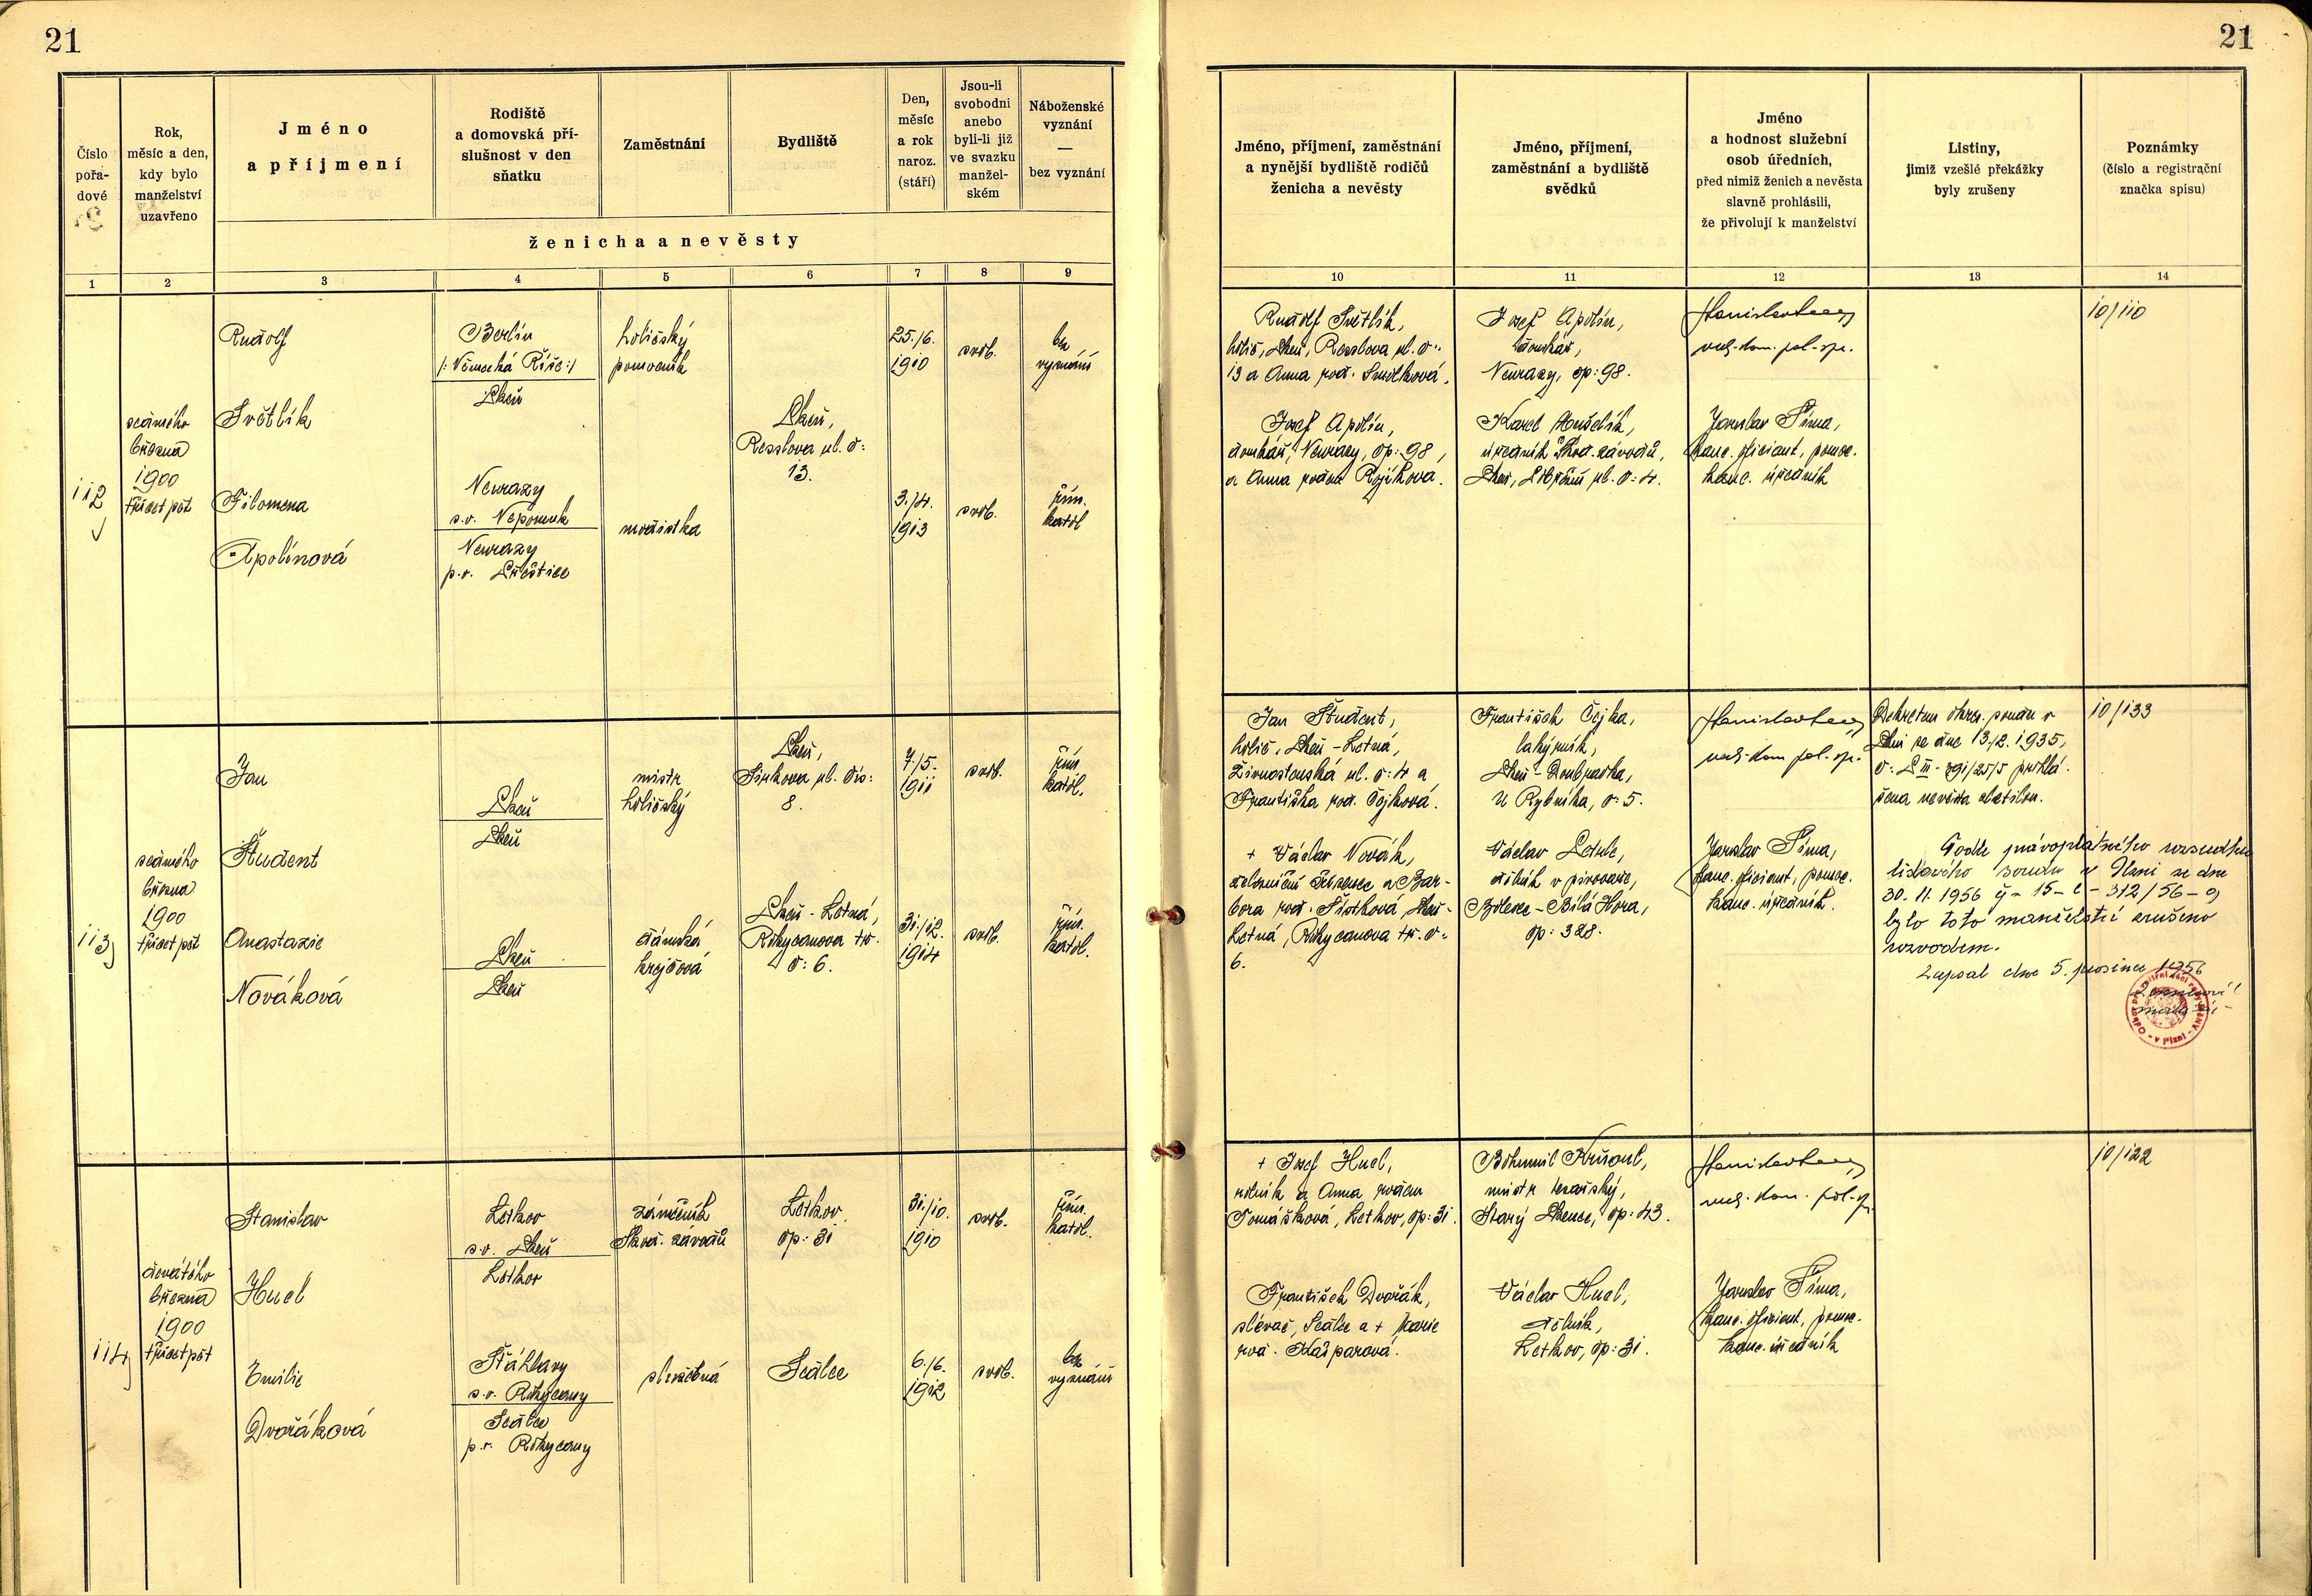 21
21
Číslo
pořa-
dové
Rok,
měsíc a den,
kdy bylo
manželství
uzavřeno
Jméno
a příjmení
Rodiště
a domovská pří-
slušnost v den
sňatku
Zaměstnání
Bydliště
Den,
měsíc
a rok
naroz.
(stáří)
Jsou-li
svobodni
anebo
byli-li již
ve svazku
manžel-
ském
Náboženské
vyznání
—
bez vyznání
ženicha a nevěsty
1 2 3 4 5 6 7 8 9
Jméno, příjmení, zaměstnání
a nynější bydliště rodičů
ženicha a nevěsty
Jméno, příjmení,
zaměstnání a bydliště
svědků
Jméno
a hodnost služební
osob úředních,
před nimiž ženich a nevěsta
slavně prohlásili,
že přivolují k manželství
Listiny,
jimiž vzešlé překážky
byly zrušeny
Poznámky
(číslo a registrační
značka spisu)
10 11 12 13 14
112
sedmého
března
1900
třicet pět
Rudolf
Světlík
Filomena
Apolínová
Berlín
/: Německá Říše :/
Plzeň
Neurazy
s.o. Nepomuk
Neurazy
p.o. Přeštice
holičský
pomocník
modistka
Plzeň,
Resslova ul. č:
13.
25./6.
1910
3./4.
1913
svob.
svob.
bez
vyznání
řím.
katol.
Rudolf Světlík,
holič, Plzeň, Resslova ul. č:
13 a Anna roz. Smolková.
Josef Apolín,
domkář, Neurazy, čp: 98,
a Anna rozená Rojíková.
Josef Apolín,
domkář,
Neurazy, čp: 98.
Karel Hušelík,
úředník Škod. závodů,
Plzeň, ul. č: 4.
Jaroslav Šíma,
kanc. oficiant, pomoc.
kanc. úředník
10/110
113
sedmého
března
1900
třicet pět
Jan
Študent
Anastazie
Nováková
Plzeň
Plzeň
Plzeň
Plzeň
mistr
holičský
dámská
krejčová
Plzeň,
Sirkova ul. čís:
8.
Plzeň - Letná,
Rokycanova tř.
č: 6.
7./5.
1911
31./12.
1914
svob.
svob.
řím.
katol.
řím.
katol.
Jan Študent,
holič, Plzeň - Letná,
Živnostenská ul. č: 4 a
Františka roz. Čejková.
+ Václav Novák,
železniční zřízenec a Bar-
bora roz. Šístková, Plzeň -
Letná, Rokycanova tř. č:
6.
František Čejka,
lakýrník,
Plzeň - Doubravka,
U Rybníka, č: 5.
Václav
dělník v pivovaře,
Bolevec - Bílá Hora,
čp: 328.
Jaroslav Šíma,
kanc. oficiant, pomoc.
kanc. úředník.
Dekretem okres. soudu v
Plzni ze dne 13./2. 1935,
č: P III - 291/25/5 prohlá-
šena nevěsta zletilou.
10/133
Podle právoplatného rozsudku
lidového soudu v Plzni ze dne
30. 11. 1956 č - 15 - C - 312/56 - 9
bylo toto manželství zrušeno
rozvodem.
Zapsal dne 5. prosince 1956
114
devátého
března
1900
třicet pět
Stanislav
Hucl
Emilie
Dvořáková
Letkov
s.o. Plzeň
Letkov
Šťáhlavy
s.o. Rokycany
Sedlec
p.o. Rokycany
zámečník
Škod. závodů
služebná
Letkov
čp: 31
Sedlec
31./10.
1910
6./6.
1912
svob.
svob.
řím.
katol.
bez
vyznání
+ Josef Hucl,
rolník a Anna rozen.
Tomášková, Letkov, čp: 31.
František Dvořák,
slévač, Sedlec a + Marie
roz. Kašparová.
Bohumil
mistr tesařský,
Starý Plzenec, čp: 43.
Václav Hucl,
dělník,
Letkov, čp: 31.
Jaroslav Šíma,
kanc. oficiant, pomoc.
kanc. úředník
10/122